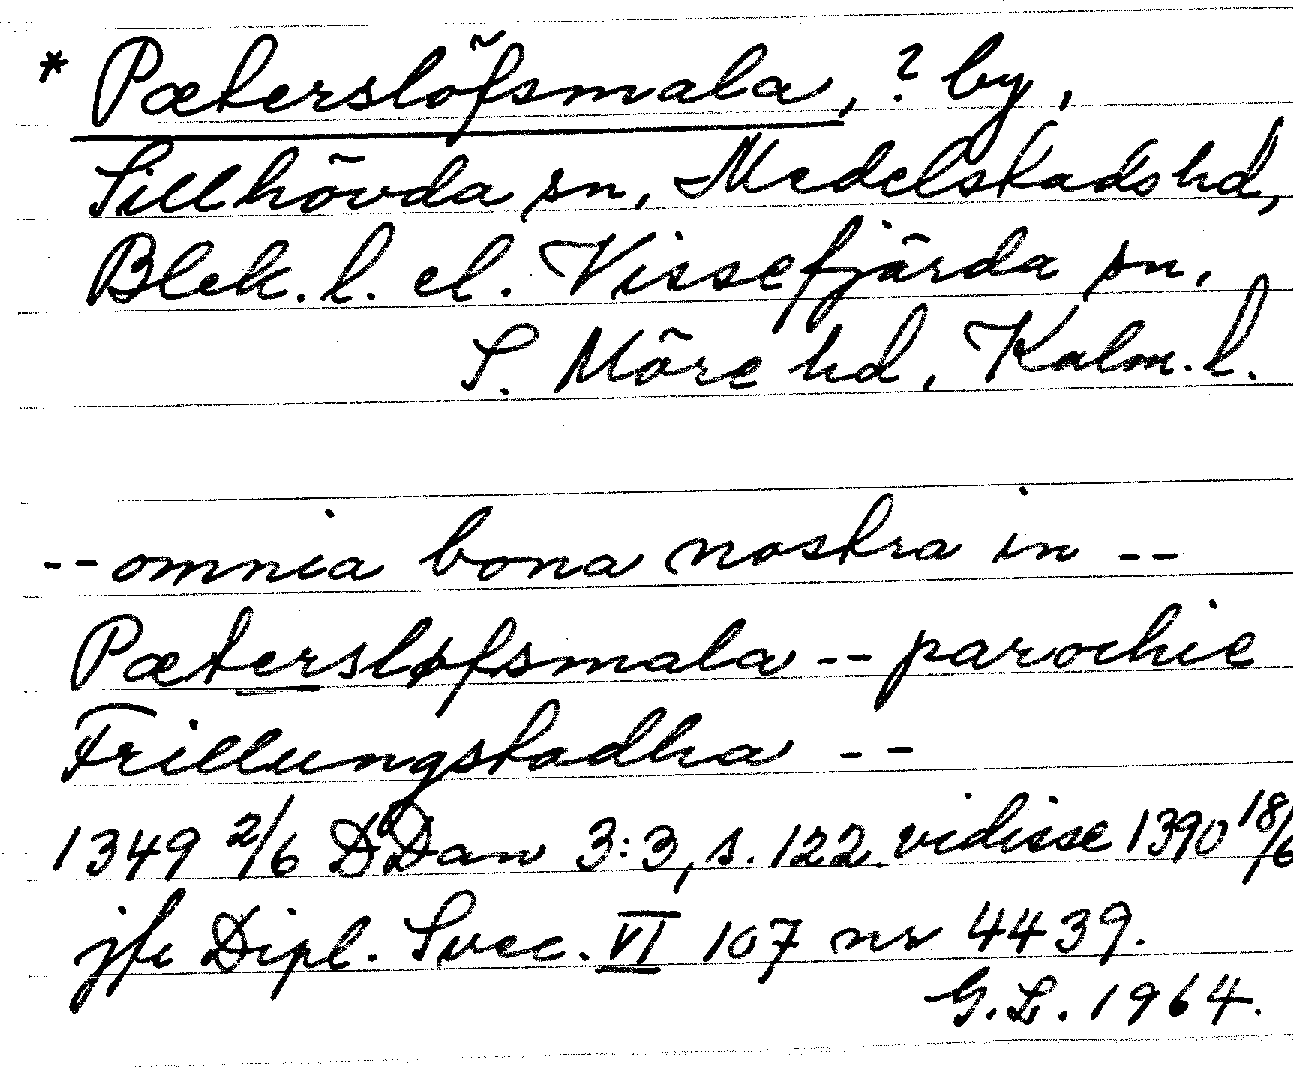 * Pæterslöfsmala, ? by,
Sillhövda sn, Medelstads hd,
Blek. l. el. Vissefjärda sn,
S. Möre hd, Kalm. l.
-- omnia bona nostra in --
Pætersløfsmala -- parochie
Frillungstadha --
1349 2/6 DDan 3:3, s. 122 vidisse 1390 18/6
jfr Dipl. Svec. VI 107 nr 4439.
G.L. 1964.